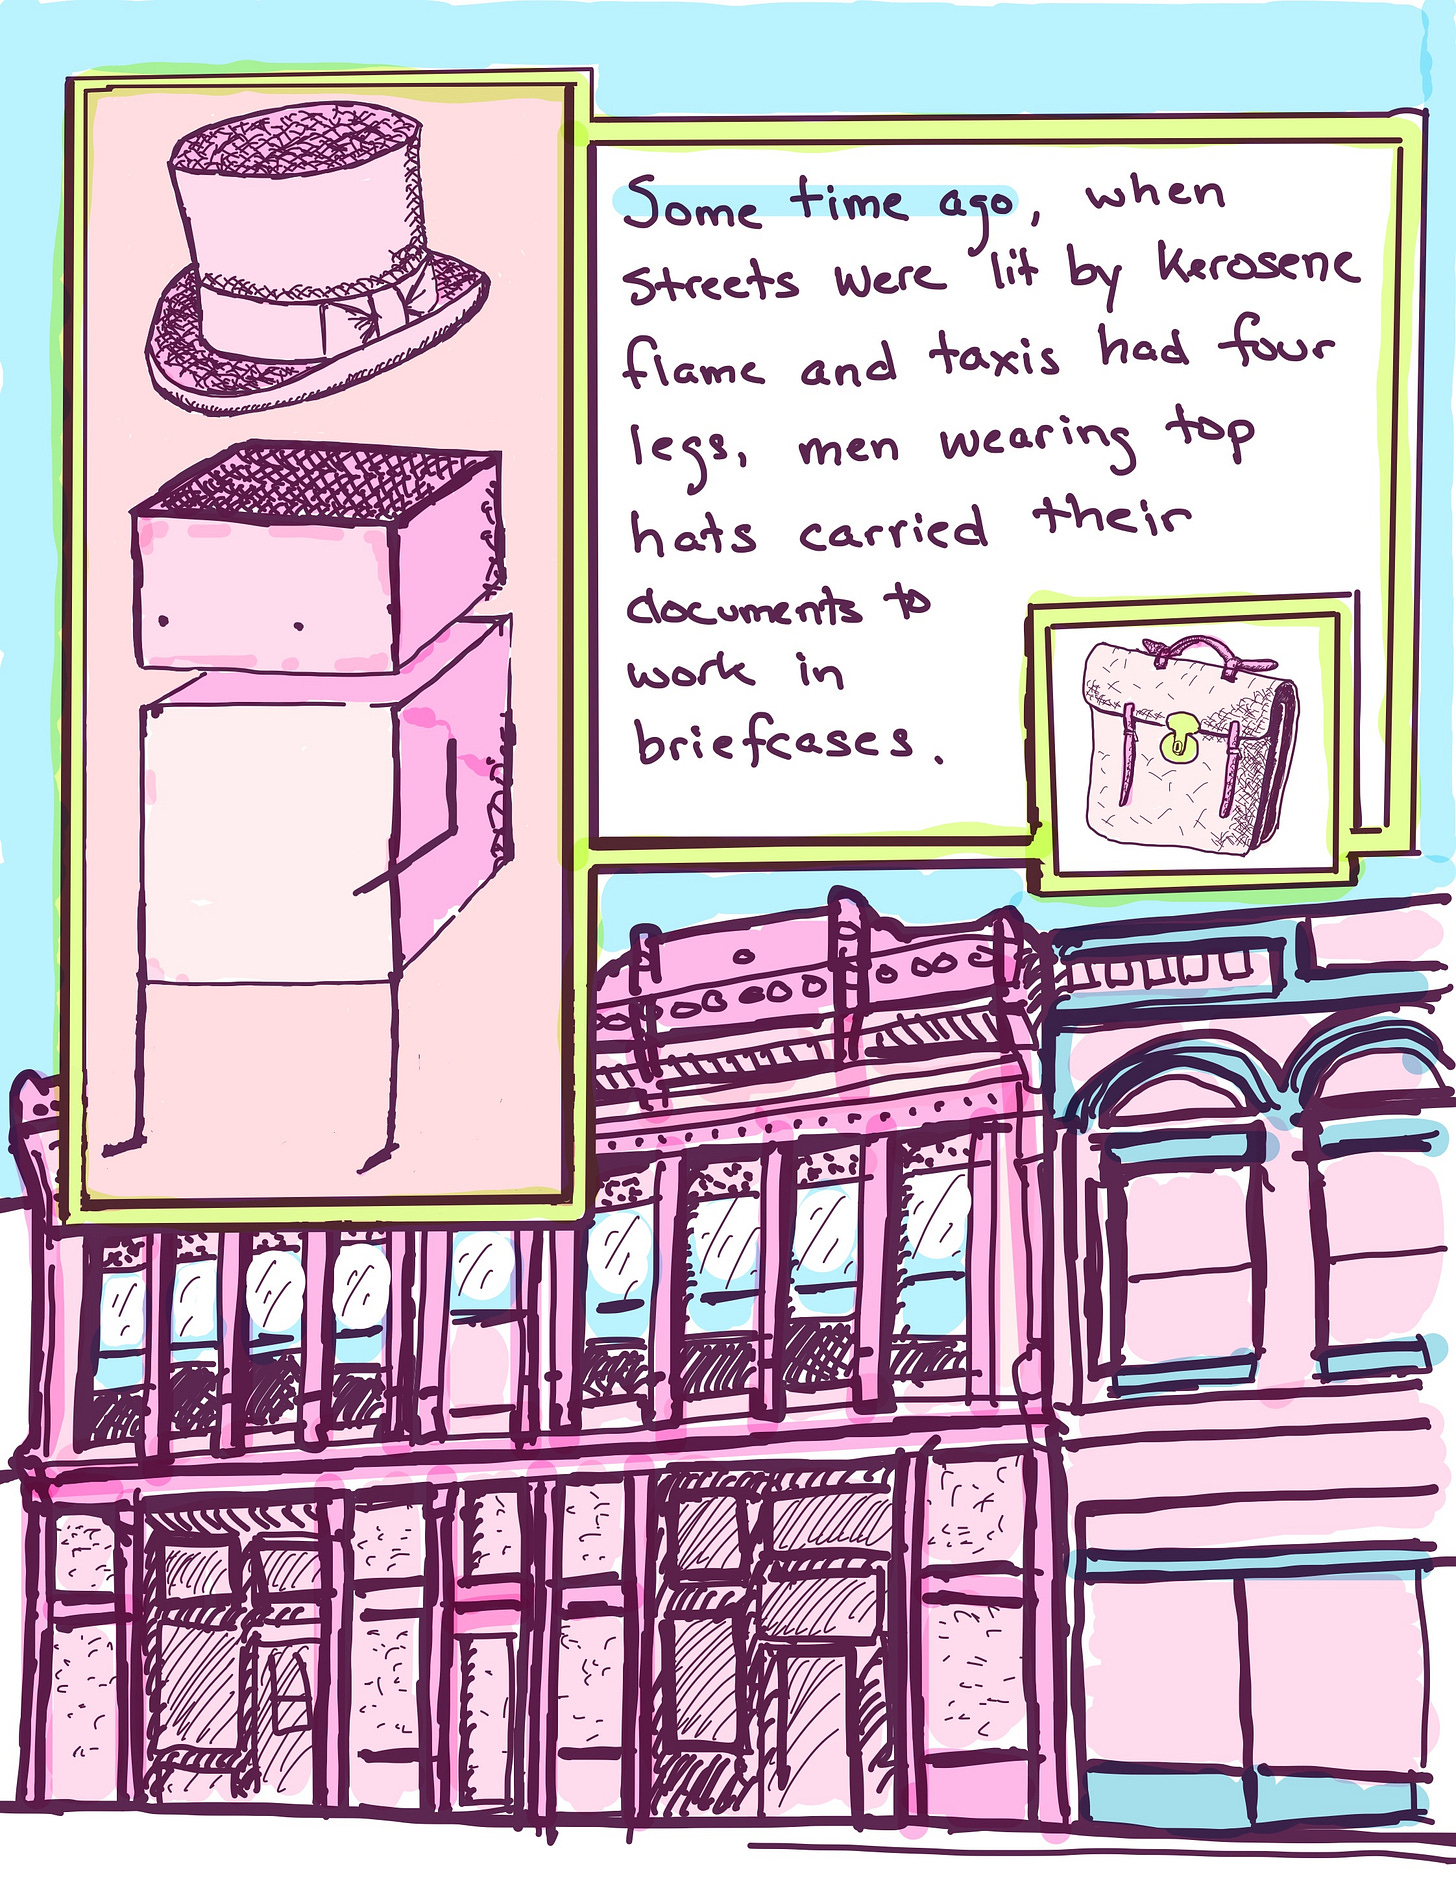 Some time ago, when
streets were lit by kerosene
flame and taxis had four
legs, men wearing top
hats carried their
documents to
work in
briefcases.